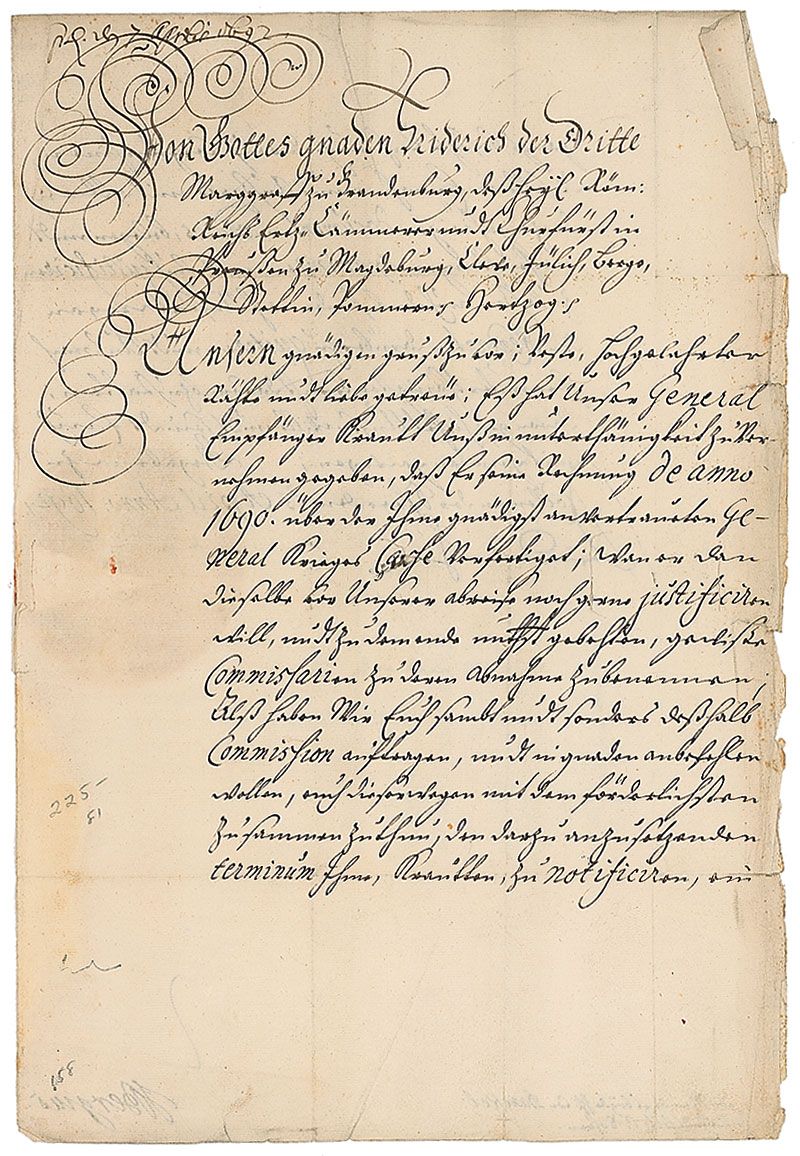 d. 7 Aprilis 1692
Von Gottes gnaden Friderich der Dritte
Marggraff zu Brandenburg, deß Heyl. Röm:
Reichs Ertz-Cämmerer undt Churfürst in
Preußen zu Magdeburg, Cleve, Jülich, Berge,
Stettin, Pommern Hertzog
Unsern gnädigen gruß zuvor; Veste, Hochgelahrter
Rähte undt liebe getreue; Eß hat Unser General
Empfänger Krautt Unß in unterthänigkeit zu Ver-
nehmen gegeben, daß Er seine Rechnung de anno
1690. über der Ihme gnädigst anvertraueten Ge-
neral Krieges Casse Verfertiget; wan er dan
dieselbe vor Unserer abreise noch gerne justificiren
will, undt zu dem ende gebehten, gewiße
Commissarien zu deren Abnahme zubenennen;
Alß haben Wir Euch sambt undt sonders deßhalb
Commission aufftragen, undt in gnaden anbefehlen
wollen, euch dieserwegen mit dem förderlichsten
zusammen zuthun, den darzu anzusetzenden
terminum Ihme, Krautten, zu notificiren, ein
225
81
158